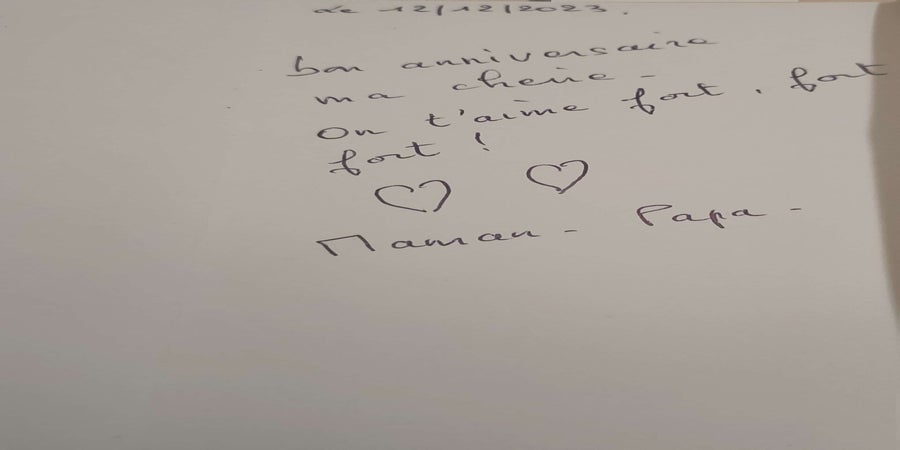 Le 12/12/2023.
bon anniversaire
ma cherie -
On t'aime fort, fort
fort !
Maman - Papa -